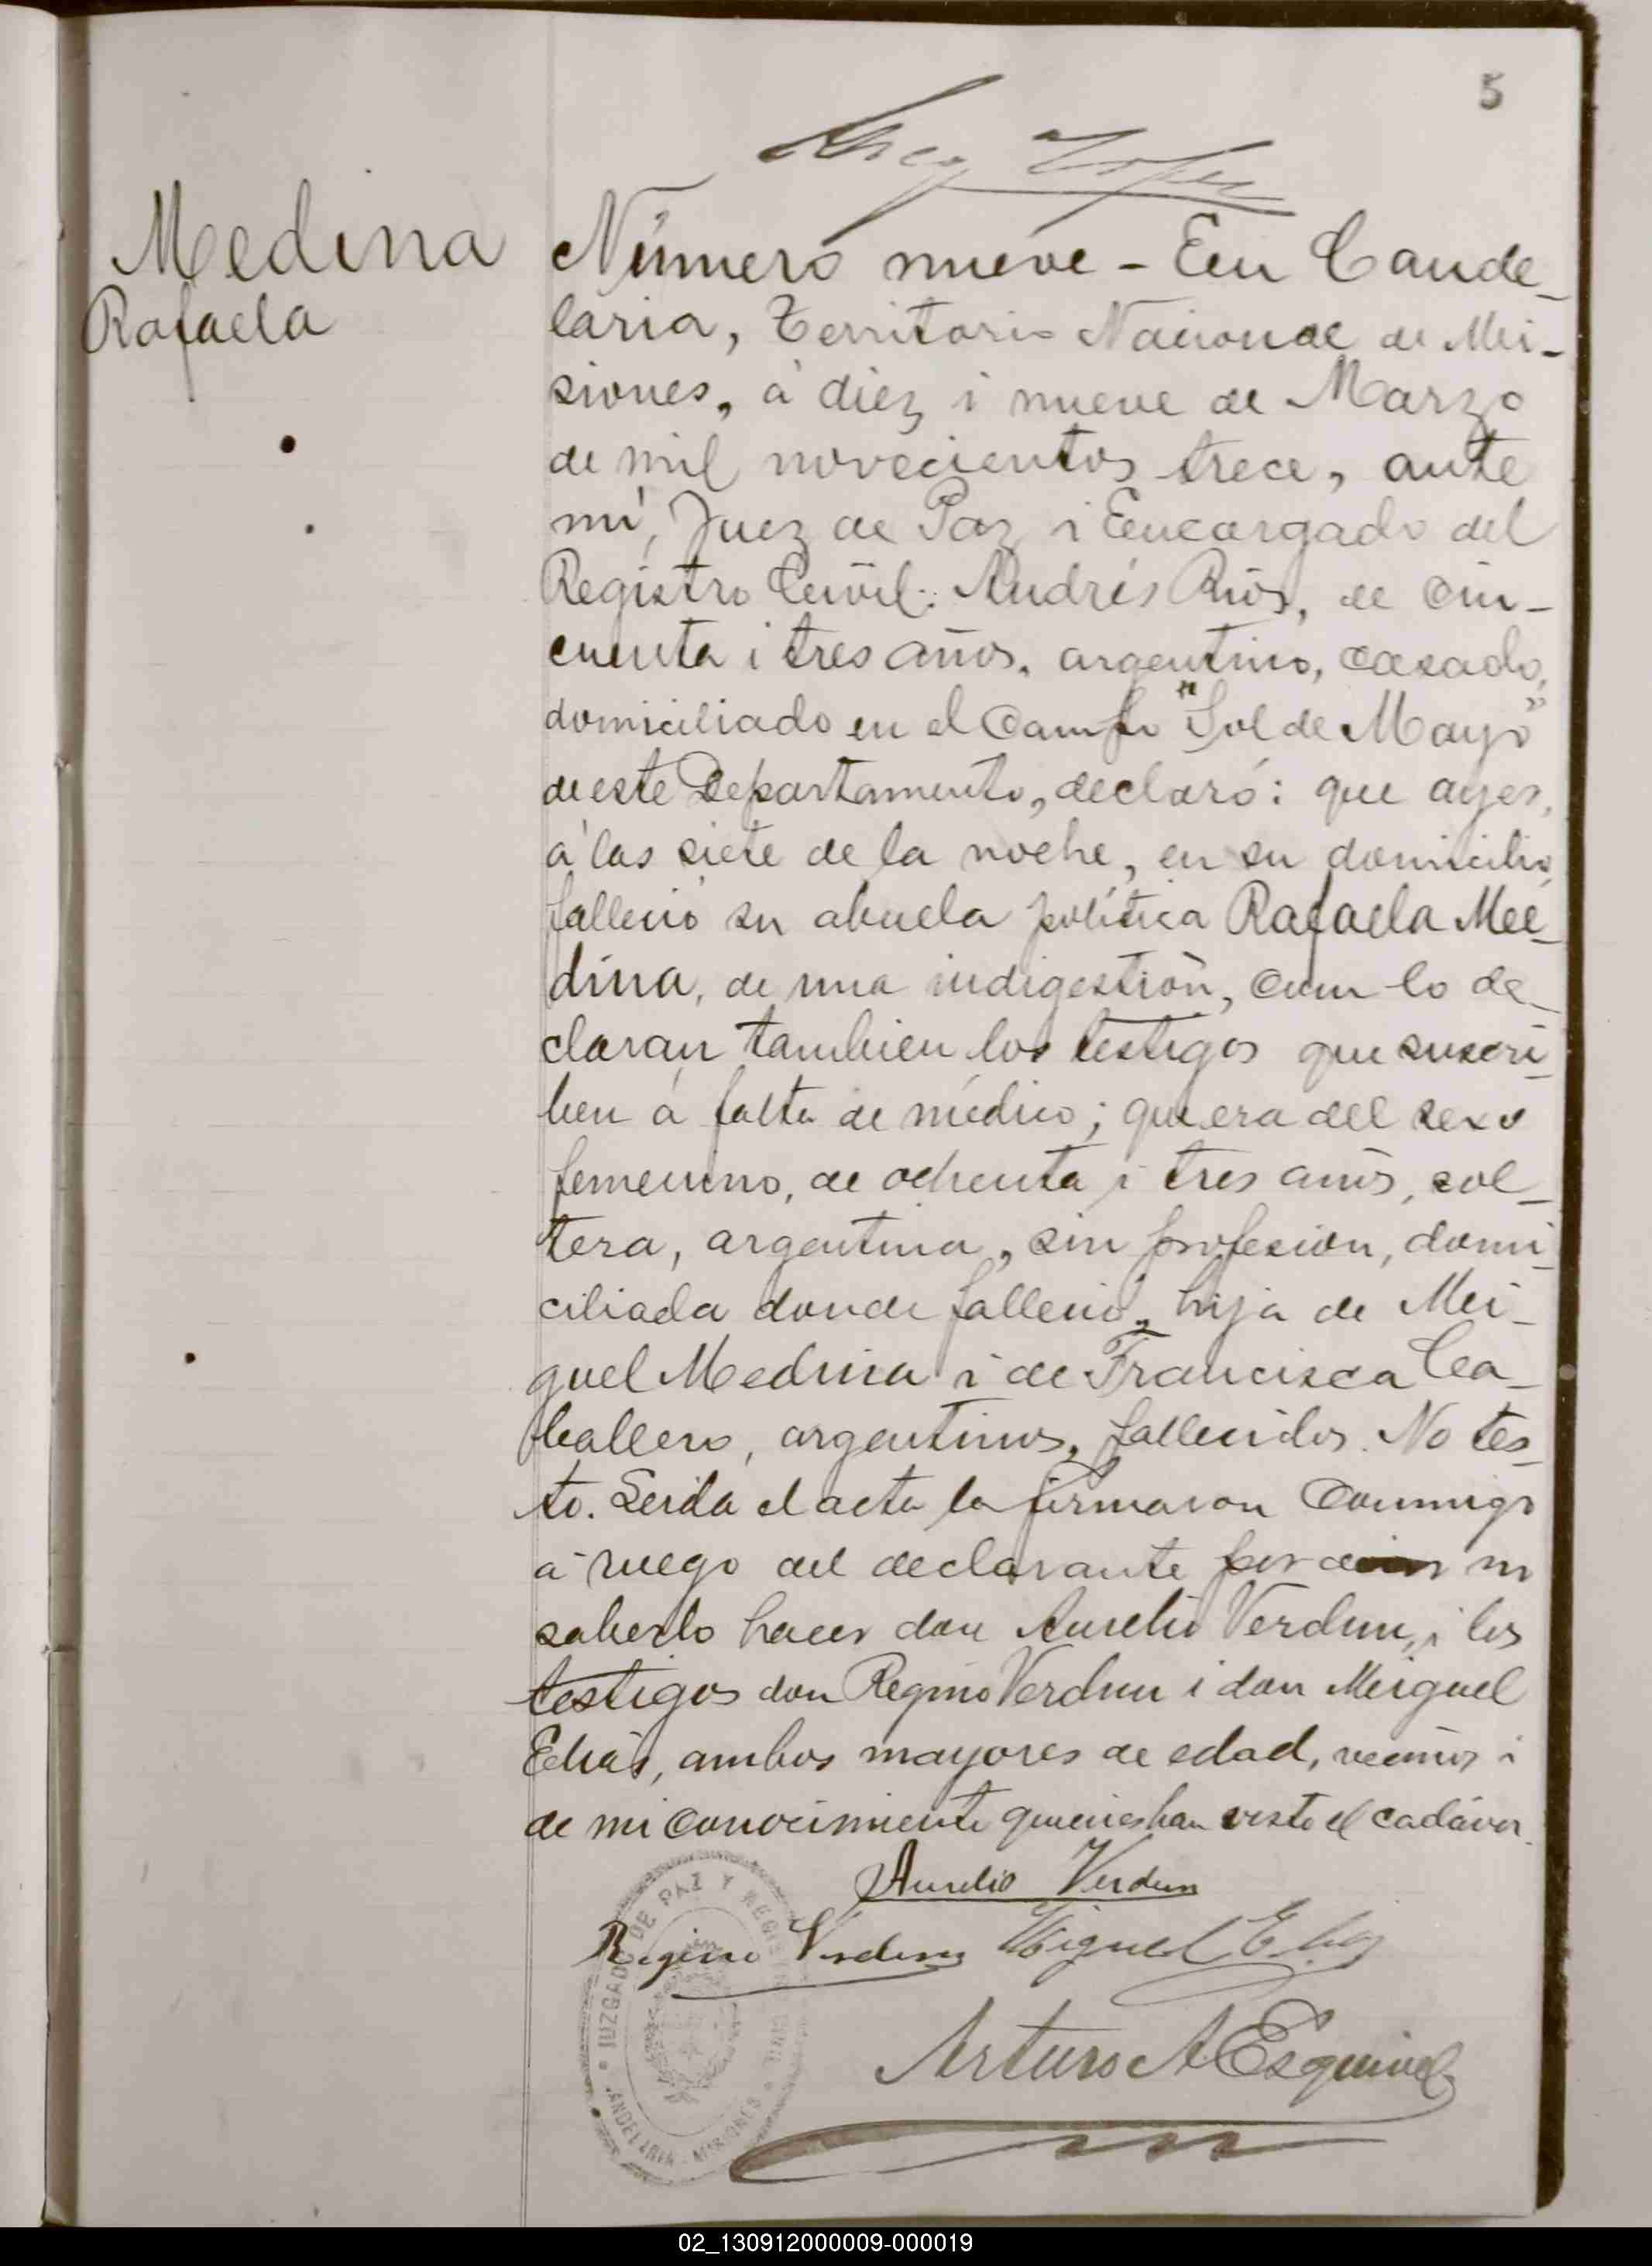 5
Medina
Rafaela
Número nueve - En Cande_
laria, Territorio Nacional de Mi-
siones, á diez i nueve de Marzo
de mil novecientos trece, ante
mí, Juez de Paz i Encargado del
Registro Civil: Andrés Rios, de cin-
cuenta i tres años, argentino, casado,
domiciliado en el Campo "Sol de Mayo"
de este Departamento, declaró: que ayer,
á las siete de la noche, en su domicilio,
falleció su abuela política Rafaela Me_
dina, de una indigestión, como lo de_
claran tambien los testigos que suscri_
ben á falta de médico; que era del sexo
femenino, de ochenta i tres años, sol_
tera, argentina, sin profesion, domi_
ciliada donde falleció, hija de Mi_
guel Medina i de Francisca Ca_
ballero, argentinos, fallecidos. No tes_
tó. Leida el acta la firmaron conmigo
á ruego del declarante por no
saberlo hacer don Aurelio Verdun, i los
testigos don Regino Verdun i don Miguel
Elias, ambos mayores de edad, vecinos i
de mi conocimiento quienes han visto el cadáver.
Aurelio Verdun
Regino Verdun Miguel Elias
Arturo A Esquivel
JUZGADO DE PAZ Y REGISTRO CIVIL
CANDELARIA - MISIONES
02_130912000009-000019